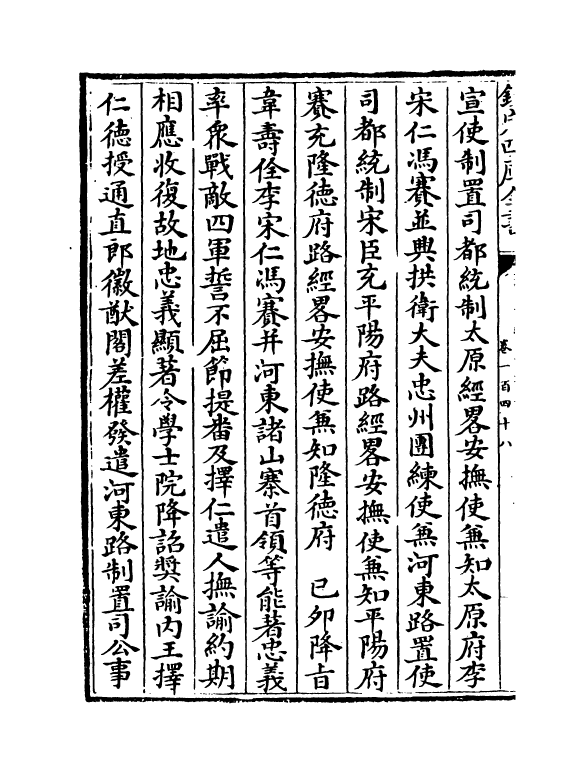 欽定四庫全書
卷一百四十八
宣使制置司都統制太原經畧安撫使兼知太原府李
宋仁馮賽並與拱衛大夫忠州團練使兼河東路置使
司都統制宋臣充平陽府路經畧安撫使兼知平陽府
賽充隆德府路經畧安撫使兼知隆德府　已卯降㫖
韋壽佺李宋仁馮賽并河東諸山寨首領等能著忠義
率衆戰敵四軍誓不屈節提畨及擇仁遣人撫諭約期
相應收復故地忠義顯著令學士院降詔奬諭内王擇
仁德授通直郎徽猷閣差權發遣河東路制置司公事